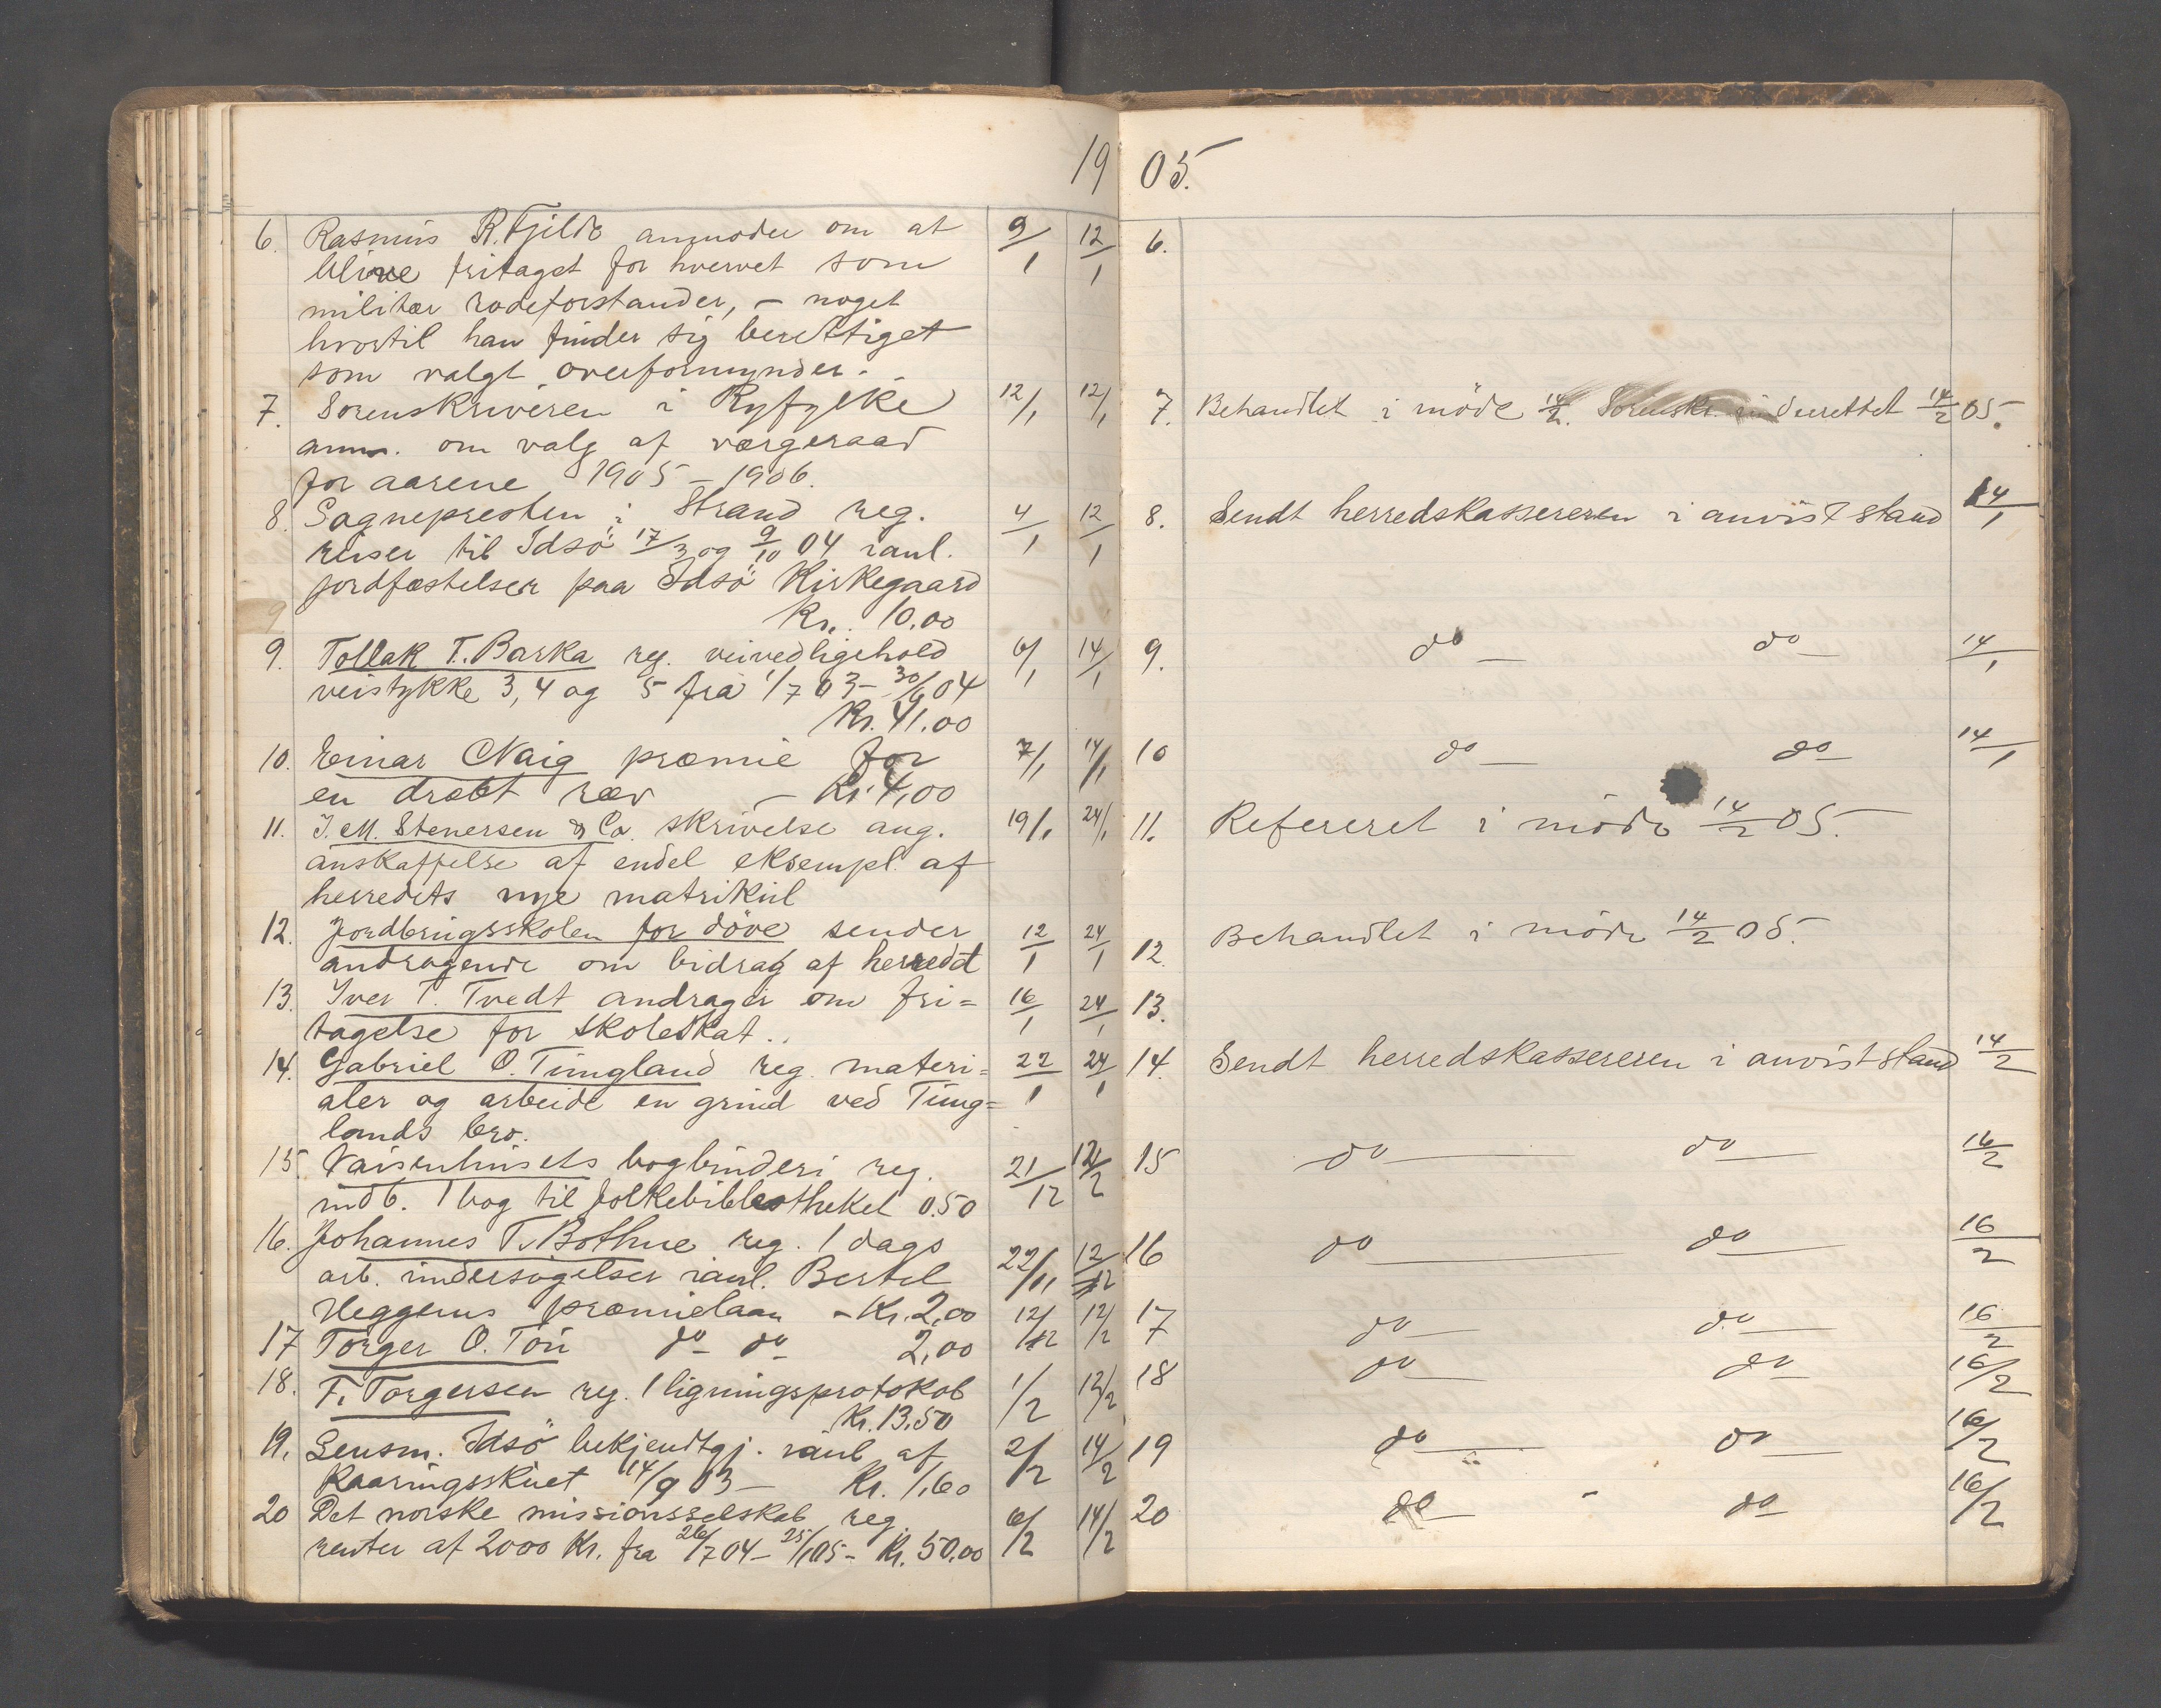 1905.
6. Rasmus R. Fjelde anmoder om at 9/1 12/1
blive fritaget for hvervet som
militær rodeforstander, – noget
hvortil han finder sig berettiget
som valgt overformynder.
7. Sorenskriveren i Ryfylke 12/1 12/1
anm. om valg af værgeraad
for aarene 1905–1906.
8. Sognepresten i Strand reg. 4/1 12/1
reiser til Idsö 17/3 og 9/10 04 ianl.
jordfæstelser paa Idsö Kirkegaard
Kr. 10,00
9. Tollak T. Barka reg. veivedligehold 6/1 14/1
veistykke 3, 4 og 5 fra 1/7 03 – 30/6 04
Kr. 41,00
10. Einar Naig præmie for 7/1 14/1
en dræbt ræv – Kr. 4,00
11. J. M. Stenersen & Co. skrivelse ang. 19/1 24/1
anskaffelse af endel eksempl. af
herredets nye matrikul
12. Jordbrugsskolen for döve sender 12/1 24/1
andragende om bidrag af herredet
13. Iver T. Tvedt andrager om fri= 16/1 24/1
tagelse for skoleskat.
14. Gabriel O. Tungland reg. materi= 22/1 24/1
aler og arbeide en grind ved Tung=
lands bro.
15. Vaisenhusets bogbinderi reg. 21/12 12/2
indb. 1 bog til folkebibliotheket 0.50
16. Johannes T. Bothne reg. 1 dags
arb. undersögelser ianl. Bertel 22/11 12/2
Heggems præmielaan – Kr. 2,00
17 Torger O. Tou do do 2,00 12/12 12/2
18. F. Torgersen reg. 1 ligningsprotokol 1/2 12/2
Kr. 13,50
19. Lensm. Idsö bekjendtgj. ianl af 2/2 14/2
Kaaringsskuet 14/9 03 – Kr. 1,60
20 Det norske missionsselskab reg 6/2 14/2
renter af 2000 Kr. fra 26/7 04 – 25/1 05 – Kr. 50,00
6.
7. Behandlet i möde 14/2. Sorenskr. underrettet 14/2 05.
8. Sendt herredskassereren i anvist stand 14/1
9. do — do — 14/1
10 do — do — 14/1
11. Refereret i möde 14/2 05.
12. Behandlet i möde 14/2 05.
13.
14. Sendt herredskassereren i anvist stand 14/2
15 do — do — 16/2
16 do — do — 16/2
17 do — do — 16/2
18 do — do — 16/2
19 do — do — 16/2
20 do — do — 16/2